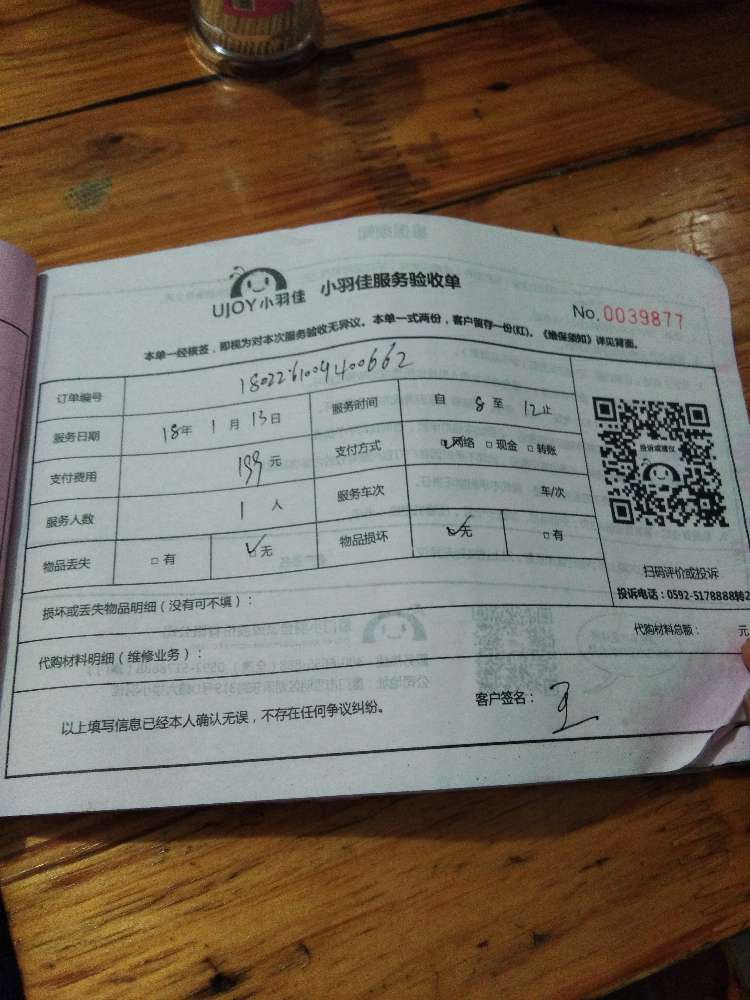 UJOY小羽佳 小羽佳服务验收单
No. 0039877
本单一经核签，即视为对本次服务验收无异议。本单一式两份，客户留存一份(红)。《维保须知》详见背面。
订单编号 1802261009400662
服务日期 18年 1月 13日 服务时间 自 8 至 12止
支付费用 199元 支付方式 网络 □现金 □转账
服务人数 1 人 服务车次 车/次
物品丢失 □有 □无 物品损坏 □无 □有
投诉或建议
扫码评价或投诉
投诉电话：0592-5178888转2
损坏或丢失物品明细（没有可不填）：
代购材料明细（维修业务）： 代购材料总额： 元
以上填写信息已经本人确认无误，不存在任何争议纠纷。 客户签名：